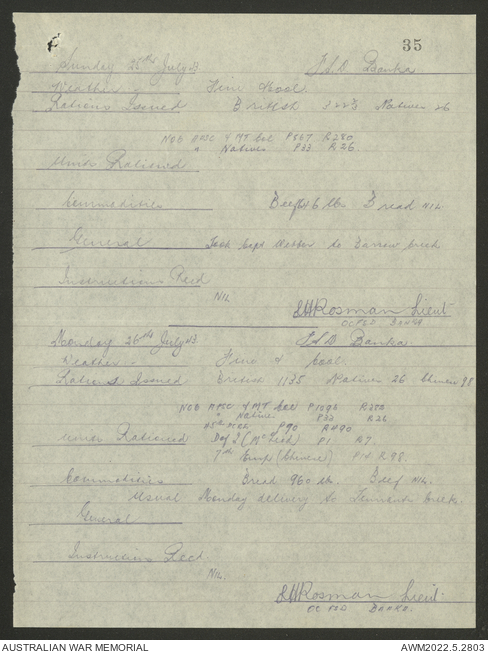 35
Sunday 25th July 43 FSD Banka
Weather - Fine & Cool
Rations Issued British Natives 26
NOB AASC & MT Col P867 R280
" Natives P33 R26
Units Rationed
Commodities Beef lbs Bread NIL
General Took Capt Webber to Darrow creek
Instructions Recd
NIL
Rosman Lieut
OC FSD BANKA
Monday 26th July 43 FSD Banka
Weather - Fine & Cool
Rations Issued British 1135 Natives 26 Chinese 98
NOB AASC & MT Col P1096
" Natives P33 R26
P90 R490
Units Rationed P1 R7
7th Emp (Chinese) R98
Commodities Bread 960 lbs. Beef NIL.
Usual Monday delivery to Tennant creek.
General
Instructions Recd
NIL.
Rosman Lieut.
OC FSD BANKA.
AUSTRALIAN WAR MEMORIAL AWM2022.5.2803